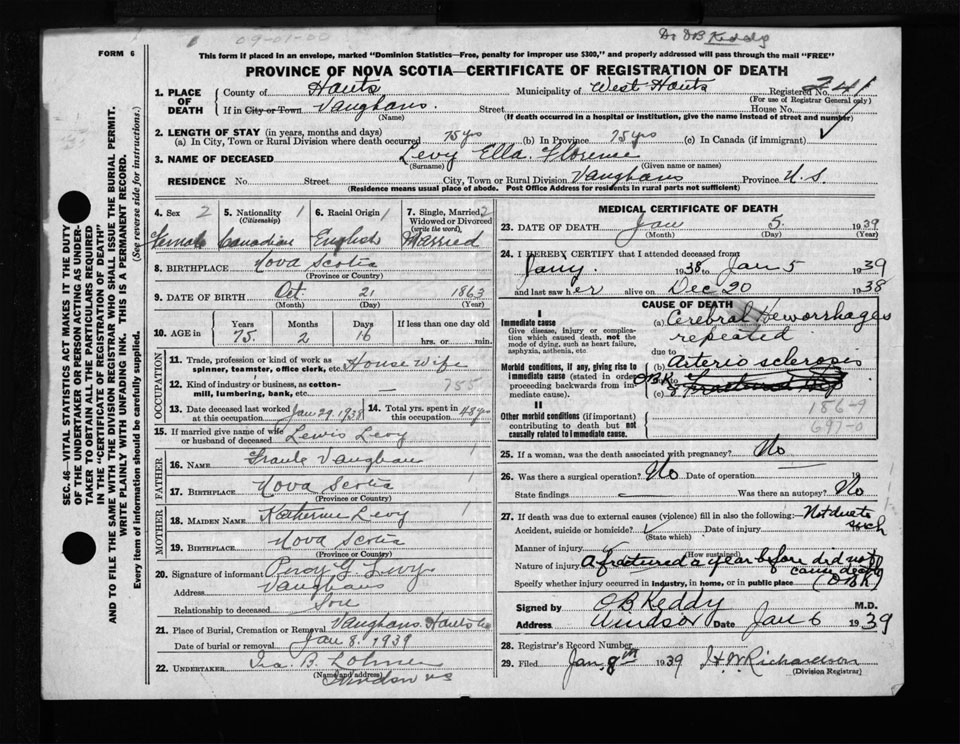 09-01-00
Dr OB Keddy
FORM 6
This form if placed in an envelope, marked "Dominion Statistics—Free, penalty for improper use $300," and properly addressed will pass through the mail "FREE"
PROVINCE OF NOVA SCOTIA—CERTIFICATE OF REGISTRATION OF DEATH
1. PLACE OF DEATH
County of Hants Municipality of West Hants Registered No. 341
(For use of Registrar General only)
If in City or Town Vaughans. Street House No.
(Name) (If death occurred in a hospital or institution, give the name instead of street and number)
2. LENGTH OF STAY (in years, months and days)
(a) In City, Town or Rural Division where death occurred 75 yrs (b) In Province 75 yrs (c) In Canada (if immigrant) ✓
3. NAME OF DECEASED Levy Ella Florence
(Surname) (Given name or names)
RESIDENCE No. Street City, Town or Rural Division Vaughans Province N.S.
(Residence means usual place of abode. Post Office Address for residents in rural parts not sufficient)
4. Sex 2 Female
5. Nationality 1 (Citizenship) Canadian
6. Racial Origin 1 English
7. Single, Married, 2 Widowed or Divorced (write the word) Married
8. BIRTHPLACE Nova Scotia
(Province or Country)
9. DATE OF BIRTH Oct 21 1863
(Month) (Day) (Year)
10. AGE in Years Months Days If less than one day old
75 2 16 hrs. or min.
OCCUPATION
11. Trade, profession or kind of work as spinner, teamster, office clerk, etc. House Wife
12. Kind of industry or business, as cotton-mill, lumbering, bank, etc. — 755
13. Date deceased last worked at this occupation Jan 29, 1938
14. Total yrs. spent in this occupation 48 yrs
15. If married give name of wife or husband of deceased Lewis Levy
FATHER
16. NAME Vaughan 1
17. BIRTHPLACE Nova Scotia
(Province or Country)
MOTHER
18. MAIDEN NAME Katherine Levy 1
19. BIRTHPLACE Nova Scotia
(Province or Country)
20. Signature of informant Percy G. Levy
Address Vaughans
Relationship to deceased Son
21. Place of Burial, Cremation or Removal Vaughans Hants Co
Date of burial or removal Jan 8. 1939
22. UNDERTAKER Ira B.
(Name and address) Windsor NS
MEDICAL CERTIFICATE OF DEATH
23. DATE OF DEATH Jan 5. 1939
(Month) (Day) (Year)
24. I HEREBY CERTIFY that I attended deceased from
Jany. 1938 to Jan 5 1939
and last saw her alive on Dec 20 1938
CAUSE OF DEATH
I
Immediate cause
Give disease, injury or complication which caused death, not the mode of dying, such as heart failure, asphyxia, asthenia, etc.
(a) Cerebral Hemorrhages
repeated
due to
Morbid conditions, if any, giving rise to immediate cause (stated in order proceeding backwards from immediate cause).
(b) Arterio sclerosis
OBK
(c)
II
Other morbid conditions (if important) contributing to death but not causally related to immediate cause.
186-9
697-0
25. If a woman, was the death associated with pregnancy? No
26. Was there a surgical operation? No Date of operation 19
State findings — Was there an autopsy? No
27. If death was due to external causes (violence) fill in also the following: Not due to such
Accident, suicide or homicide? ✓ Date of injury 19
(State which)
Manner of injury
(How sustained)
Nature of injury A fractured a year before did not cause death
Specify whether injury occurred in industry, in home, or in public place (OBK)
Signed by OB Keddy M.D.
Address Windsor Date Jan 6 1939
28. Registrar's Record Number
29. Filed Jan. 8th 1939 H W Richardson
(Division Registrar)
SEC. 46—VITAL STATISTICS ACT MAKES IT THE DUTY OF THE UNDERTAKER OR PERSON ACTING AS UNDERTAKER TO OBTAIN ALL THE PARTICULARS REQUIRED IN THE "CERTIFICATE OF REGISTRATION OF DEATH"
AND TO FILE THE SAME WITH THE DIVISION REGISTRAR WHO SHALL ISSUE THE BURIAL PERMIT.
WRITE PLAINLY WITH UNFADING INK. THIS IS A PERMANENT RECORD.
Every item of information should be carefully supplied. (See reverse side for instructions.)